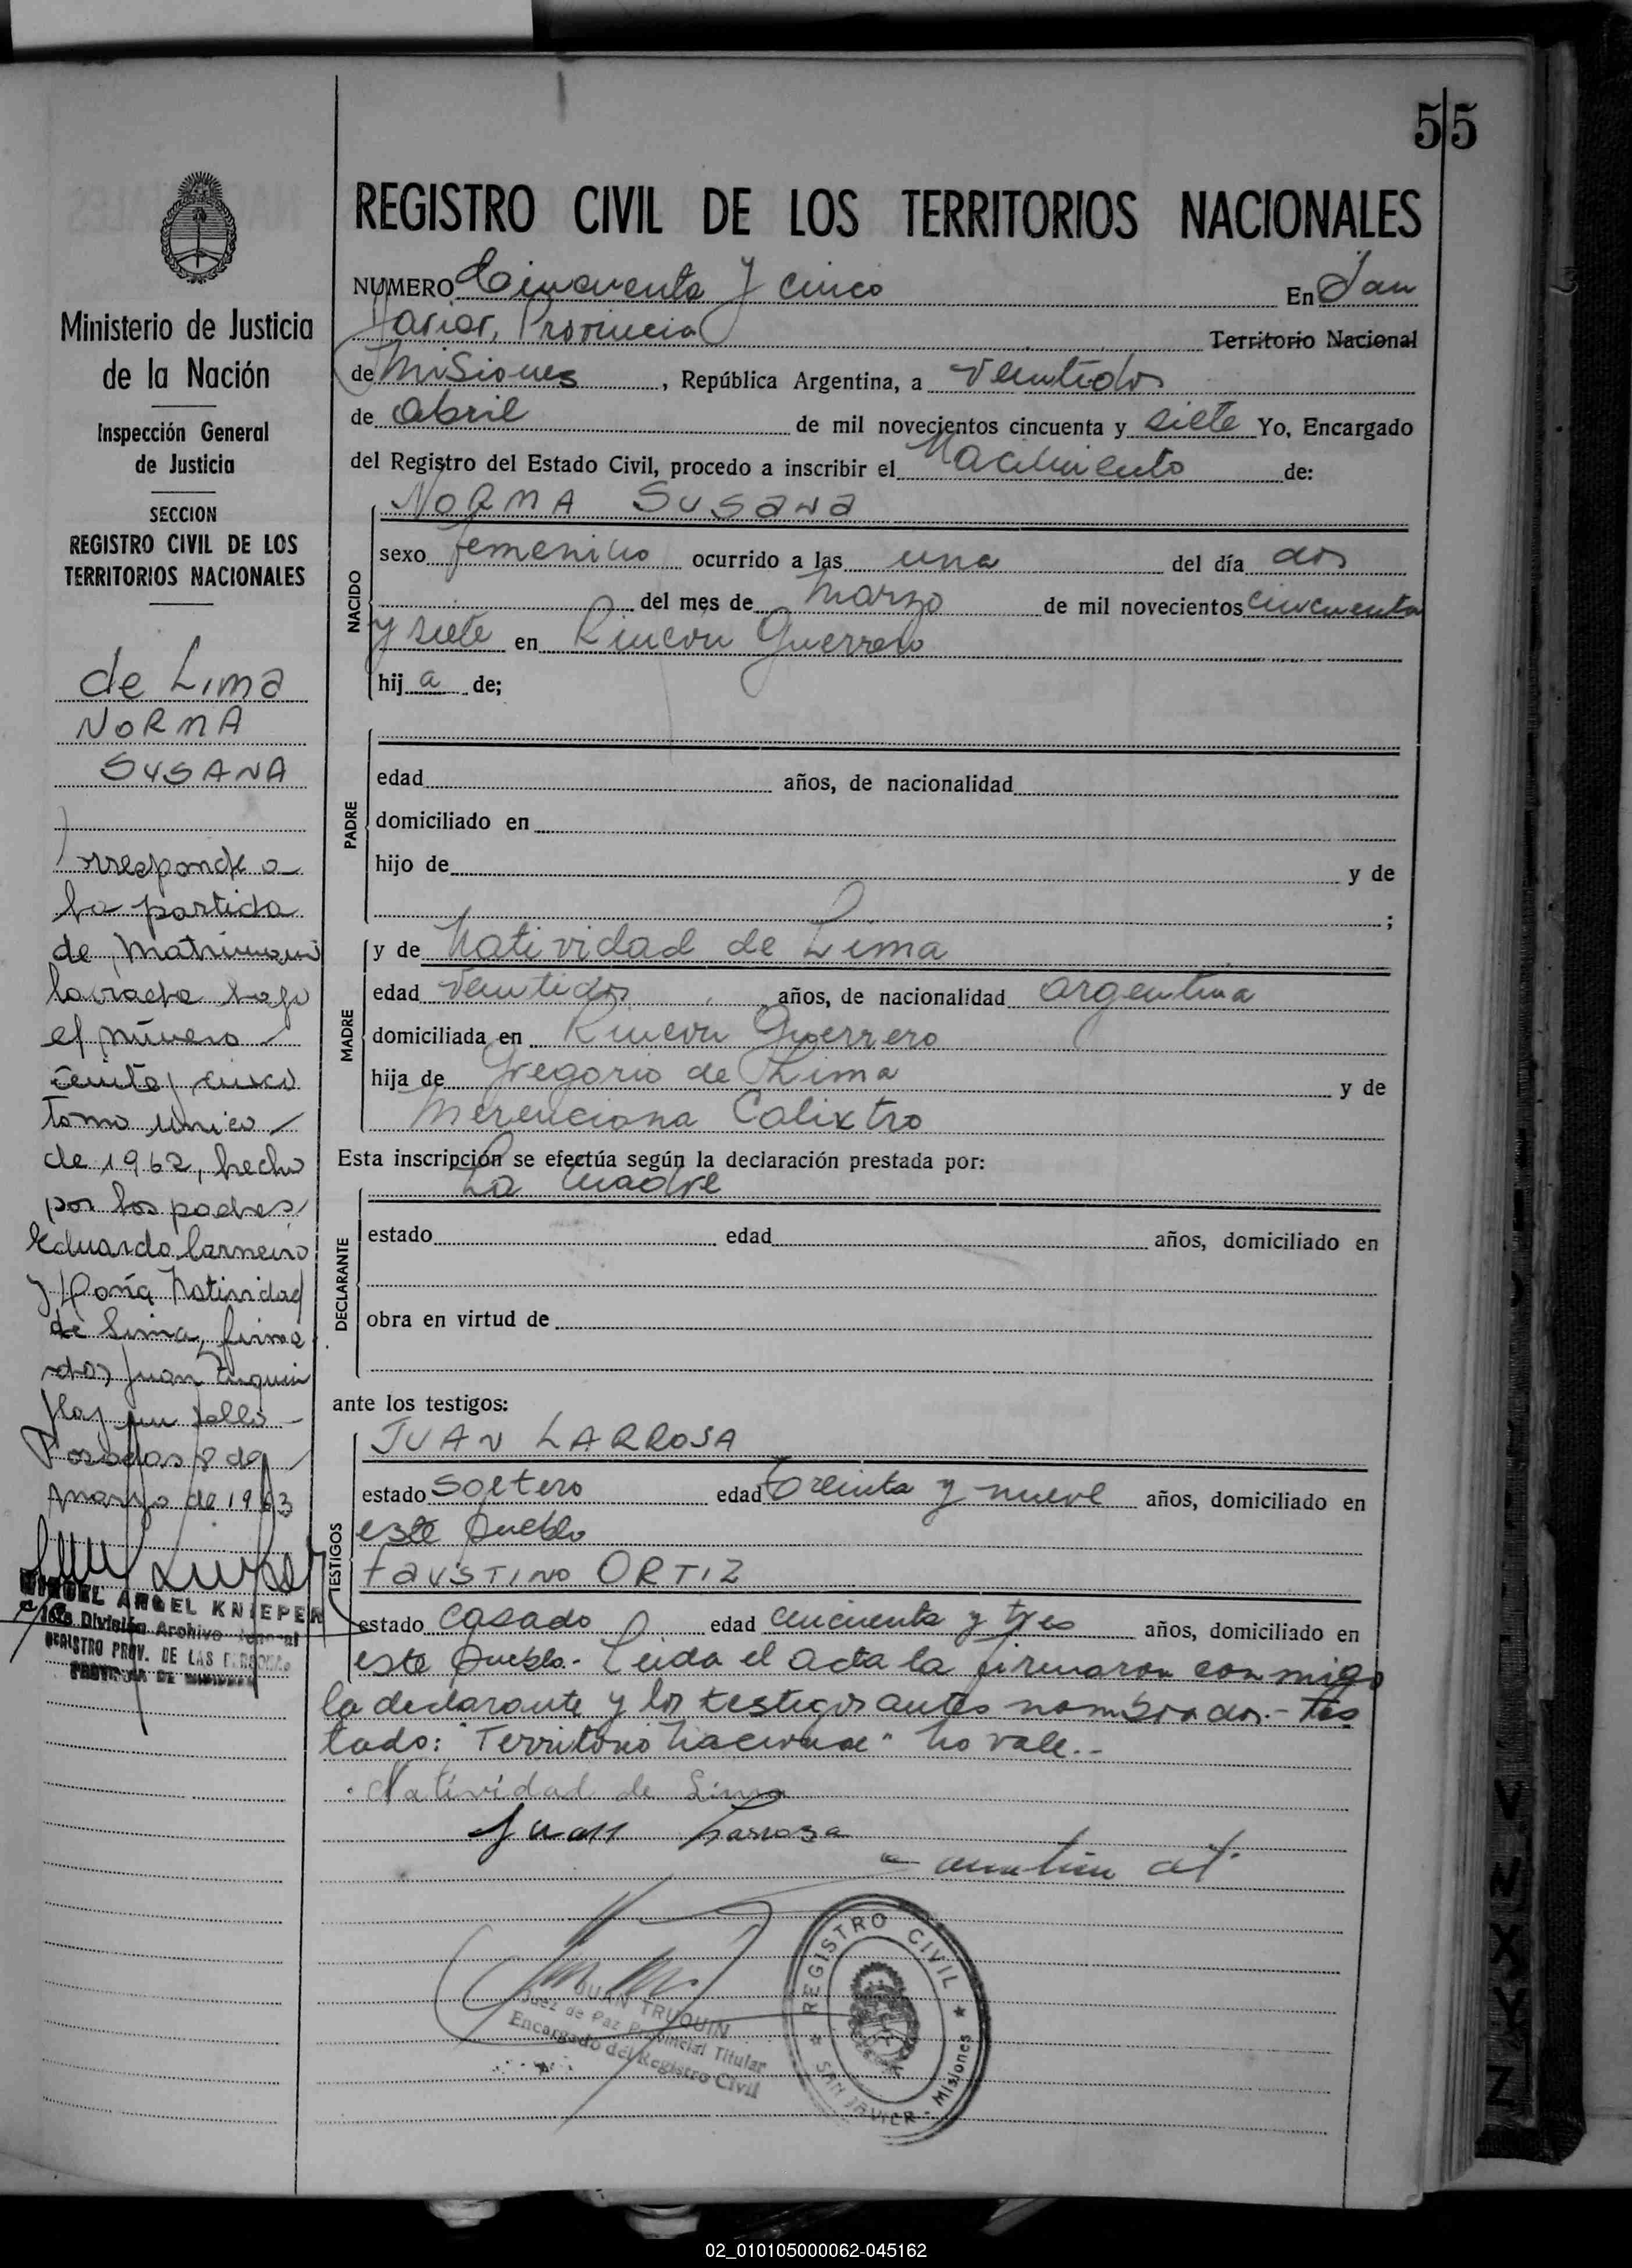 55
REGISTRO CIVIL DE LOS TERRITORIOS NACIONALES
NUMERO Cincuenta y cinco En San
Javier, Provincia Territorio Nacional
de Misiones, República Argentina, a veintidos
de abril de mil novecientos cincuenta y siete Yo, Encargado
del Registro del Estado Civil, procedo a inscribir el Nacimiento de:
NORMA SUSANA
sexo femenino ocurrido a las una del día dos
del mes de Marzo de mil novecientos cincuenta
y siete en Rincon Guerrero
hija de;
NACIDO
edad años, de nacionalidad
domiciliado en
hijo de y de
;
PADRE
y de Natividad de Lima
edad veintidos años, de nacionalidad argentina
domiciliada en Rincon Guerrero
hija de Gregorio de Lima y de
Merenciana Calixtro
MADRE
Esta inscripción se efectúa según la declaración prestada por:
La madre
estado edad años, domiciliado en
obra en virtud de
DECLARANTE
ante los testigos:
JUAN LARROSA
estado soltero edad treinta y nueve años, domiciliado en
este pueblo
FAUSTINO ORTIZ
estado casado edad cincuenta y tres años, domiciliado en
este pueblo.- Leida el acta la firmaron conmigo
la declarante y los testigos antes nombrados.- Tes
tado: "Territorio Nacional" no vale.-
TESTIGOS
Natividad de Lima
Juan Larrosa
JUAN TRUQUIN
Juez de Paz Provincial Titular
Encargado del Registro Civil
REGISTRO CIVIL
SAN JAVIER - Misiones
Ministerio de Justicia
de la Nación
Inspección General
de Justicia
SECCION
REGISTRO CIVIL DE LOS
TERRITORIOS NACIONALES
de Lima
NORMA
SUSANA
orresponde a
la partida
de Matrimonio
labrada bajo
el número
ciento cinco
tomo unico
de 1962, hecho
por los padres
Eduardo Carneiro
y Doña Natividad
de Lima, firma
dos Juan Truquin
Hay un sello
Posadas 8 de
marzo de 1963
MIGUEL ANGEL KNIEPER
División Archivo General
REGISTRO PROV. DE LAS PERSONAS
PROVINCIA DE MISIONES
V
W
X
Y
Z
02_010105000062-045162